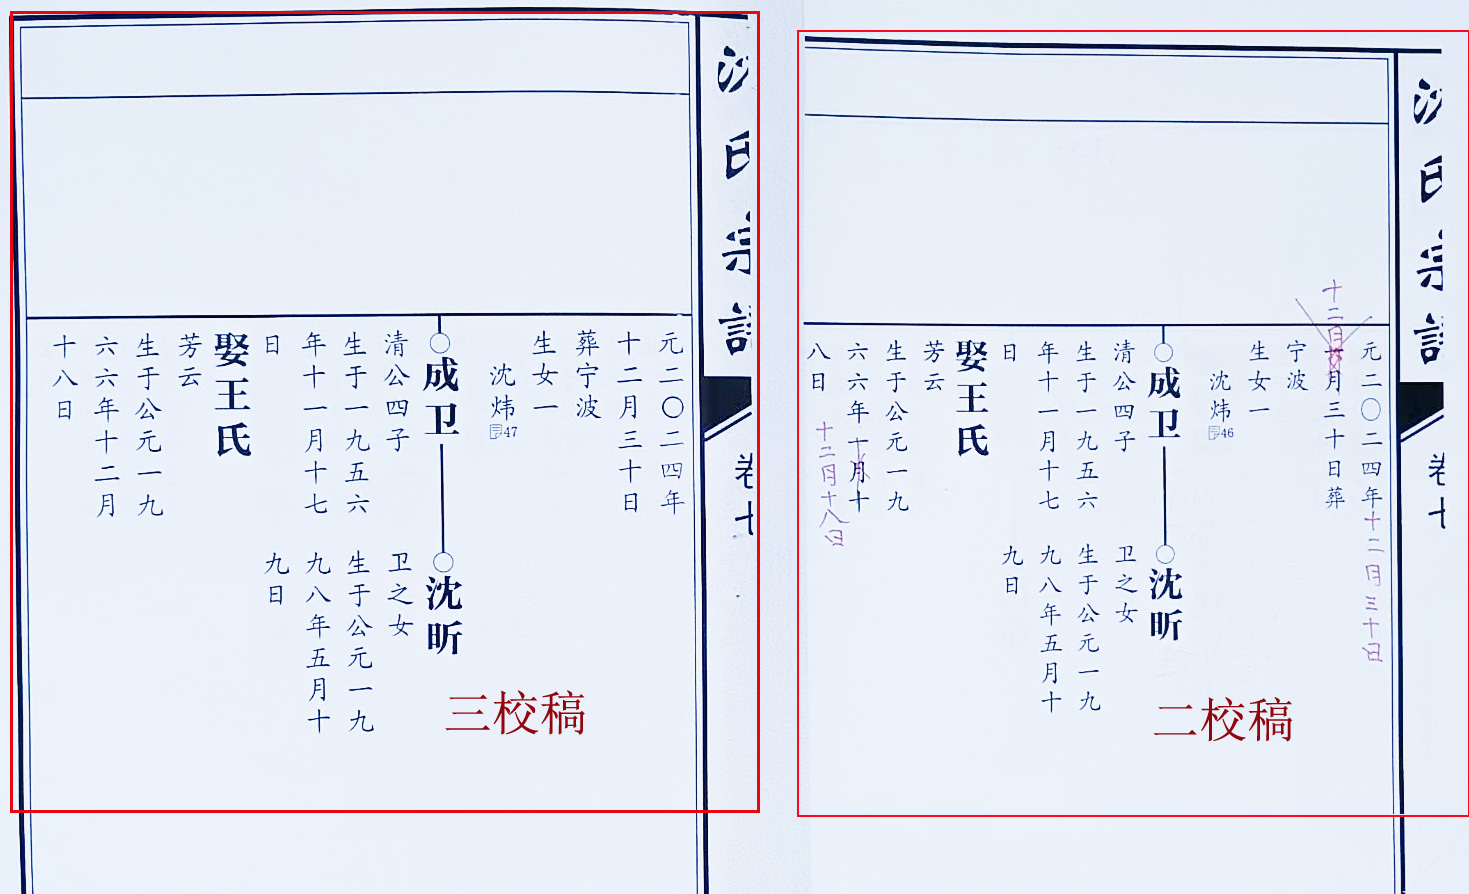 沈氏宗譜
卷十
元二〇二四年
十二月三十日
葬宁波
生女一
沈炜47
成卫
清公四子
生于一九五六
年十一月十七
日
娶王氏
芳云
生于公元一九
六六年十二月
十八日
沈昕
卫之女
生于公元一九
九八年五月十
九日
三校稿
沈氏宗譜
卷十
元二〇二四年
十二月三十日
十二月
月三十日葬
宁波
生女一
沈炜46
成卫
清公四子
生于一九五六
年十一月十七
日
娶王氏
芳云
生于公元一九
六六年十月十
八日
十二月十八日
沈昕
卫之女
生于公元一九
九八年五月十
九日
二校稿